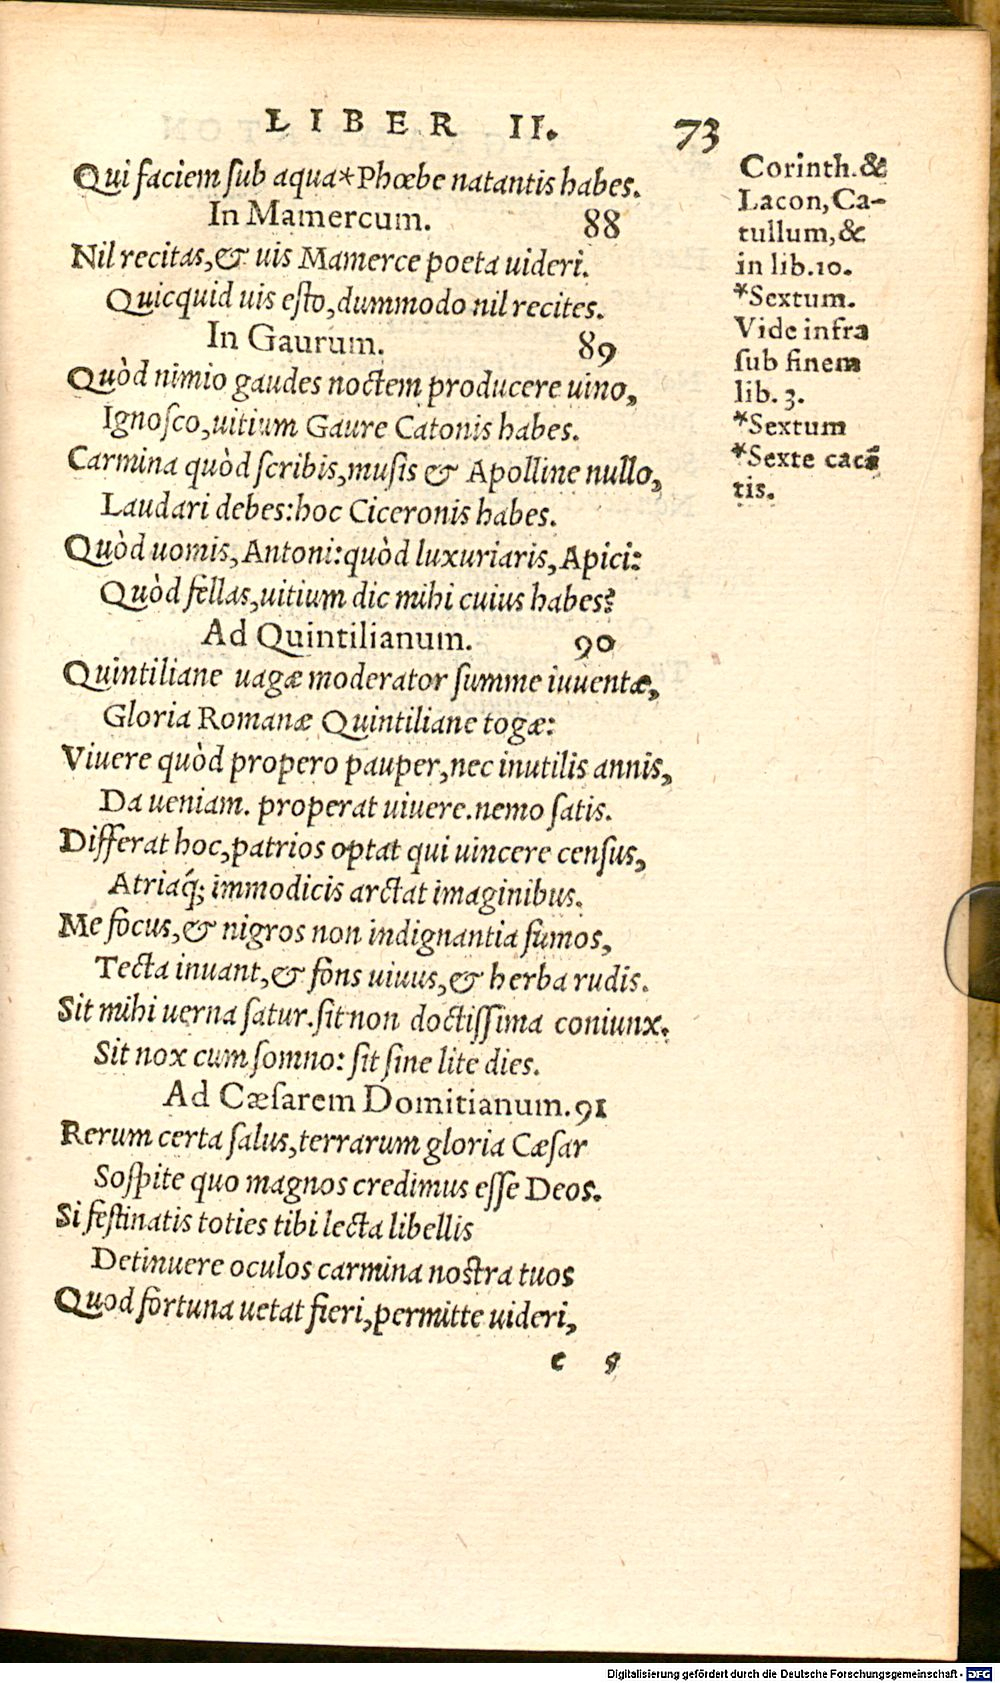 LIBER II. 73
Qui faciem sub aqua*Phœbe natantis habes.
In Mamercum. 88
Nil recitas,& uis Mamerce poeta uideri.
Quicquid uis esto,dummodo nil recites.
In Gaurum. 89
Quòd nimio gaudes noctem producere uino,
Ignosco,uitium Gaure Catonis habes.
Carmina quòd scribis,musis & Apolline nullo,
Laudari debes:hoc Ciceronis habes.
Quòd uomis,Antoni:quòd luxuriaris,Apici:
Quòd fellas,uitium dic mihi cuius habes?
Ad Quintilianum. 90
Quintiliane uagæ moderator summe iuuentæ,
Gloria Romanæ Quintiliane togæ:
Viuere quòd propero pauper,nec inutilis annis,
Da ueniam. properat uiuere.nemo satis.
Differat hoc,patrios optat qui uincere census,
Atriaq́; immodicis arctat imaginibus.
Me focus,& nigros non indignantia fumos,
Tecta iuuant,& fons uiuus,& herba rudis.
Sit mihi uerna satur.sit non doctissima coniunx.
Sit nox cum somno: sit sine lite dies.
Ad Cæsarem Domitianum.91
Rerum certa salus,terrarum gloria Cæsar
Sospite quo magnos credimus esse Deos.
Si festinatis toties tibi lecta libellis
Detinuere oculos carmina nostra tuos
Quod fortuna uetat fieri,permitte uideri,
e 5
Corinth.&
Lacon, Ca-
tullum,&
in lib.10.
*Sextum.
Vide infra
sub finem
lib. 3.
*Sextum
*Sexte cacā
tis.
Digitalisierung gefördert durch die Deutsche Forschungsgemeinschaft - DFG